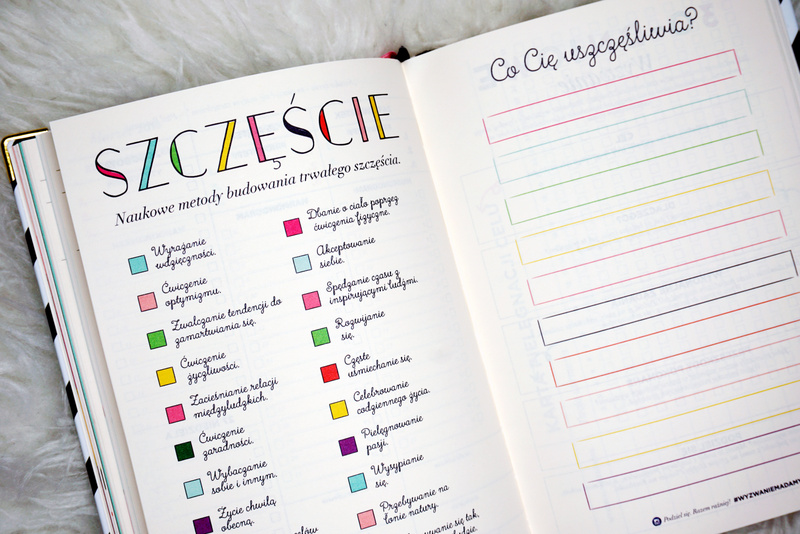 SZCZĘŚCIE
Naukowe metody budowania trwałego szczęścia.
Wyrażanie
wdzięczności.
Ćwiczenie
optymizmu.
Zwalczanie tendencji do
zamartwiania się.
Ćwiczenie
życzliwości.
Zacieśnianie relacji
międzyludzkich.
Ćwiczenie
zaradności.
Wybaczanie
sobie i innym.
Życie chwilą
obecną.
Dbanie o ciało poprzez
ćwiczenia fizyczne.
Akceptowanie
siebie.
Spędzanie czasu z
inspirującymi ludźmi.
Rozwijanie
się.
Częste
uśmiechanie się.
Celebrowanie
codziennego życia.
Pielęgnowanie
pasji.
Wysypianie
się.
Przebywanie na
łonie natury.
się tak,
Co Cię uszczęśliwia?
Podziel się. Razem raźniej! #WYZWANIEMADAMY